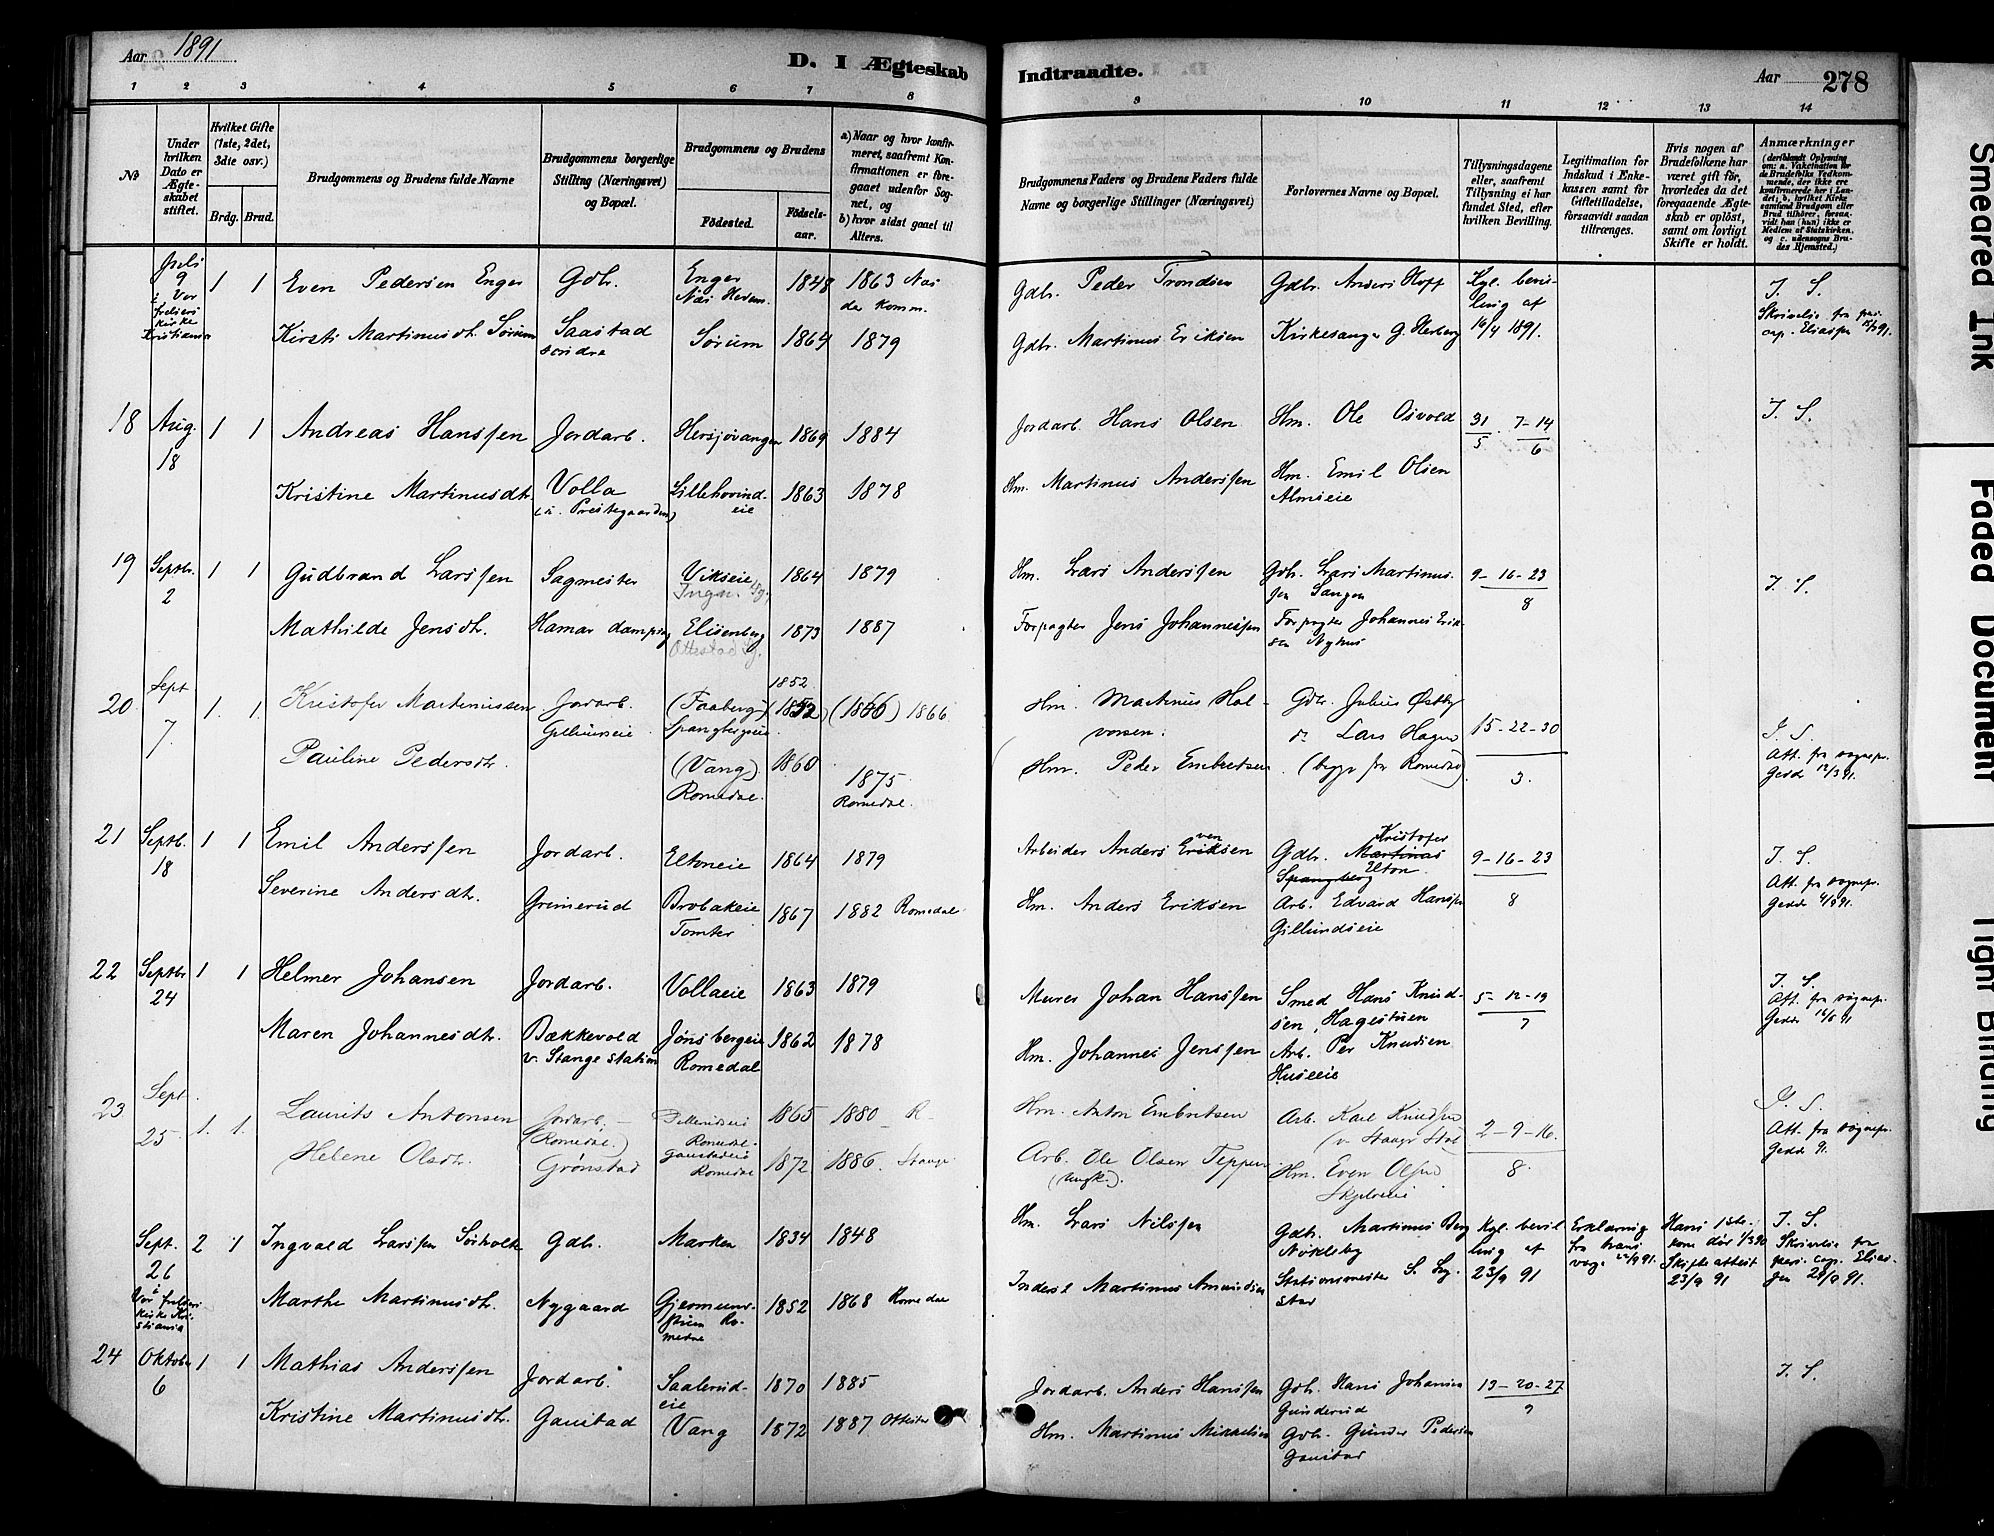 Aar 1891
D. I Ægteskab
Indtraadte.
Aar
278
1 2 3 4 5 6 7 8 9 10 11 12 13 14
No
Under hvilken Dato er Ægteskabet stiftet.
Hvilket Gifte (1ste, 2det, 3die osv.)
Brdg. Brud.
Brudgommens og Brudens fulde Navne
Brudgommens borgerlige Stilling (Næringsvei) og Bopæl.
Brudgommens og Brudens
Fødested.
Fødselsaar.
a) Naar og hvor konfirmeret, saafremt Konfirmationen er foregaaet udenfor Sognet, og
b) hvor sidst gaaet til Alters.
Brudgommens Faders og Brudens Faders fulde Navne og borgerlige Stillinger (Næringsvei)
Forlovernes Navne og Bopæl.
Tillysningsdagene eller, saafremt Tillysning ei har fundet Sted, efter hvilken Bevilling.
Legitimation for Indskud i Enkekassen samt for Giftetilladelse, forsaavidt saadan tiltrænges.
Hvis nogen af Brudefolkene har været gift før, hvorledes da det foregaaende Ægteskab er opløst, samt om lovligt Skifte er holdt.
Anmærkninger
(deriblandt Oplysning om: a. Vakcination for de Brudefolks Vedkommende, der ikke ere konfirmerede her i Landet; b. hvilket Kirkesamfund Brudgom eller Brud tilhører, forsaavidt han (hun) ikke er Medlem af Statskirken, og c. udensogns Brudes Hjemsted.)
Juli 9 i Vor frelsers kirke Kristiania
1 1 Even Pedersen Enger Gdb. Enger Næs Hedem. 1848 1863 Næs
Gdbr. Peder Trondsen Gdbr. Anders Hoff Kgl. bevilling af 16/4 1891. I. S.
Kirsti Martinusdtr. Sørum Saastad søndre Sørum 1864 1879
Gdbr. Martinus Eriksen Kirkesanger G. Herberg
18 Aug. 18 1 1 Andreas Hanssen Jordarb. Hersjøvangen 1869 1884
Jordarb. Hans Olsen Hm. Ole Osvold 31/5 7-14/6 I. S.
Kristine Martinusdtr. Volla (u. Prestegaarden) Lillehovindeie 1863 1878
Hm. Martinus Anderssen Hm. Emil Olsen Almseie
19 Septbr. 2 1 1 Gudbrand Larssen Sagmester Vikseie 1864 1879
Hm. Lars Anderssen Gdb. Lars Martinussen Sangen 9-16-23/8 I. S.
Mathilde Jensdtr. Hamar dampsag Elisenberg Ottestad 1873 1887
Forpagter Jens Johannessen Forpagter Johannes Eriksen Nyhus
20 Sept 7. 1. 1. Kristofer Martinussen Jordarb. Gillundseie (Faaberg) Spangbergeie 1852 (1866) 1866
Hm. Martinus Halvorsen. Gdbr. Julius Østby 15-22-30/3. I. S.
Pauline Pedersdtr. (Vang) Romedal. 1860 1875 Romedal.
Hm. Peder Embretsen Lars Hagen (begge fra Romedal) Att. fra sognepr. Gedde 12/3 91.
21 Septb. 18 1 1 Emil Anderssen Jordarb. Eltoneie 1864 1879
Arbeider Anders Evensen Gdb. Kristofer Elton 9-16-23/8 I. S.
Severine Andersdtr. Grimerud Brobakeie Tomter 1867 1882 Romedal
Hm. Anders Eriksen Arb. Edvard Hanssen Gillundseie Att. fra sognepr. Gedde 4/9 91.
22 Septbr 24 1 1 Helmer Johansen Jordarb. Vollaeie 1863 1879
Murer Johan Hanssen Smed Hans Knudsen, Hagestuen 5-12-19/7 I. S.
Maren Johannesdtr. Bækkevold v. Stange station Jønsbergeie Romedal 1862 1878
Hm. Johannes Jenssen Arb. Per Knudsen Huseeie Att. fra sognepr. Gedde 16/5 91
23 Sept. 25 1. 1. Laurits Antonsen Jordarb. (Romedal.) Romedal. 1865 1880 R
Hm. Anton Embretsen Arb. Karl Knudsen (v. Stange Stat 2-9-16/8. I. S.
Helene Olsdtr. Grønstad Gaustadeie Romedal 1872 1886. Stange
Arb. Ole Olsen Teppen (ungk.). Hm. Even Olsen Att. fra sognepr. Gedde 91.
Sept. 26 i Vor frelsers kirke Kristiania
2 1 Ingvald Larssen Sørholte Gdb. Marken 1834 1848
Hm. Lars Nilssen Gdb. Martinus Berg Nøkleby Kgl. bevilling af 23/9 91 Erklæring fra brans væs. 22/9 91. Hans 1ste kone død 1/3 90 Skifteattest 23/9 91 I. S. Skrivelse fra pers. cap. Eliassen 28/9 91.
Marthe Martinusdtr. Nygaard Romedal 1852 1868 Romedal
Inderst Martinus Amundsen Stationsmester S.
24 Oktober 6 1 1 Mathias Anderssen Jordarb. Saalerudeie 1870 1885
Jordarb. Anders Hanssen Gdb. Hans Johansen Gunderud 13-20-27/9 I. S.
Kristine Martinusdtr. Gaustad Vang 1872 1887 Ottestad
Hm. Martinus Mikkelsen Gdb. Gunder Pedersen Gaustad
Smeared Ink
Faded Document
Tight Binding